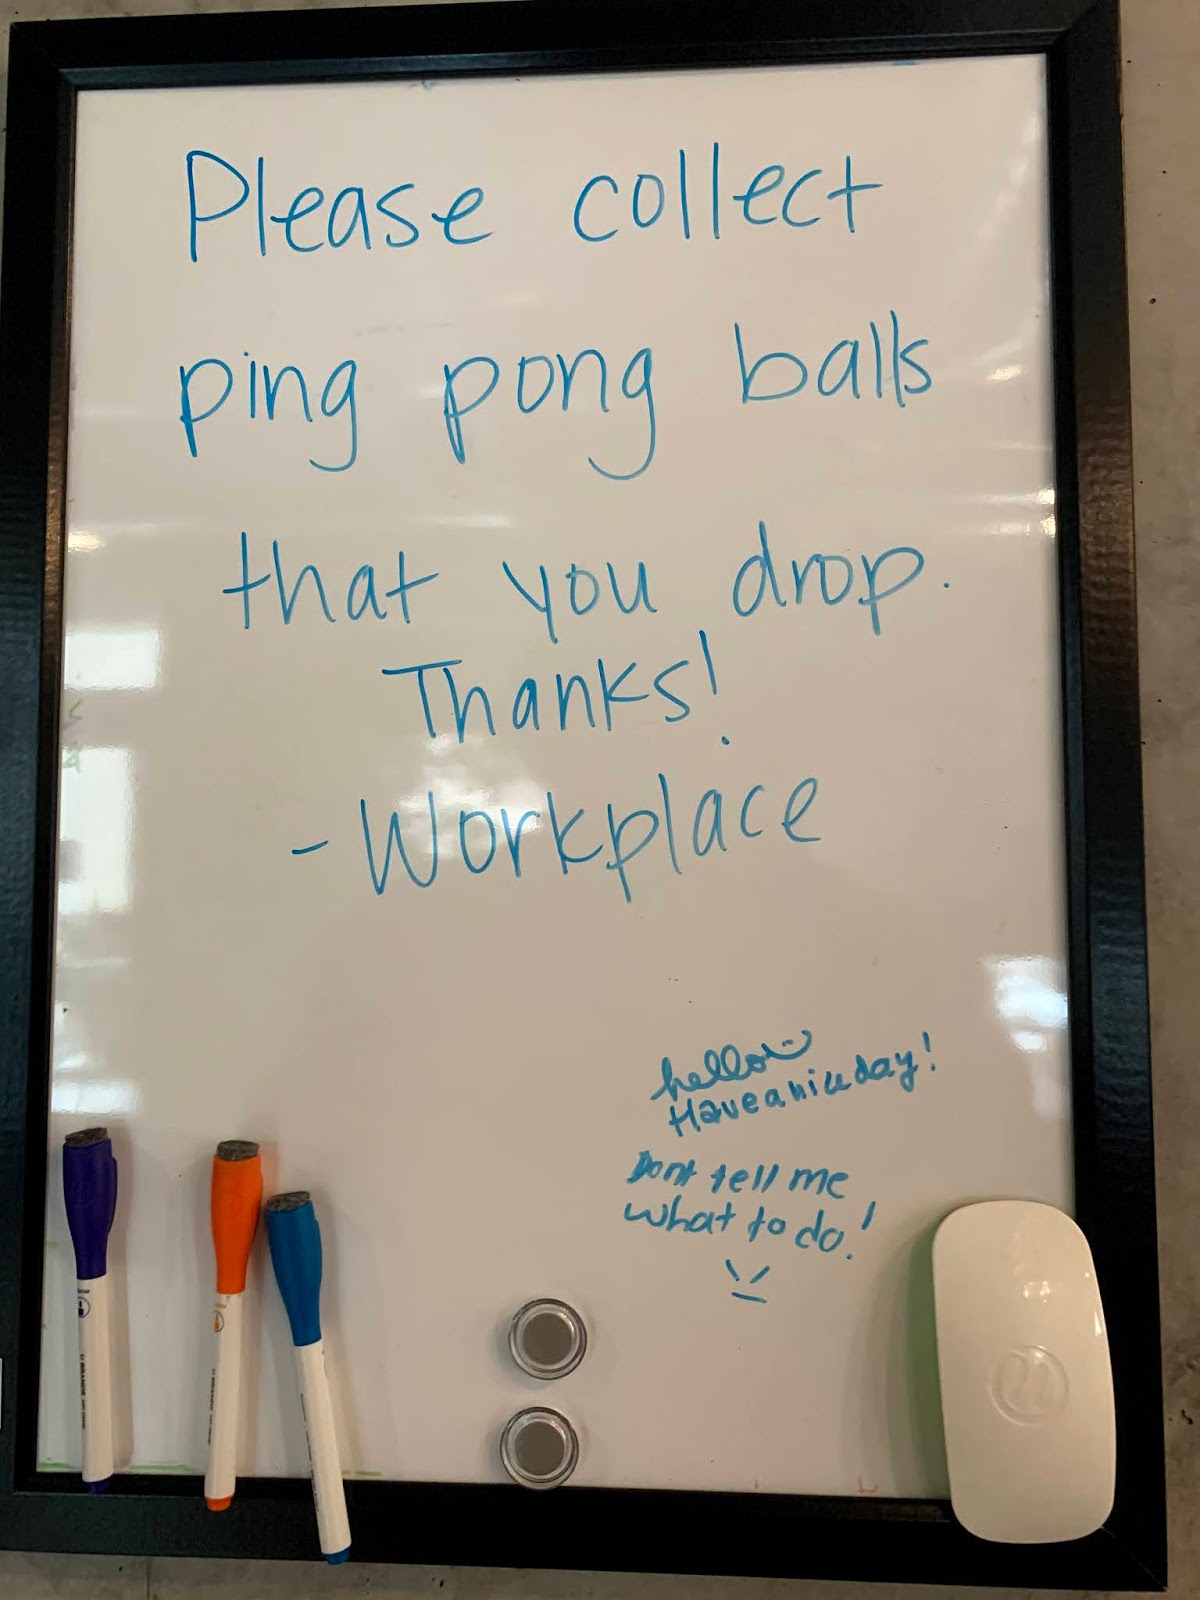 Please collect
ping pong balls
that you drop.
Thanks!
- Workplace
hello
Have a nice day!
Dont tell me
what to do!